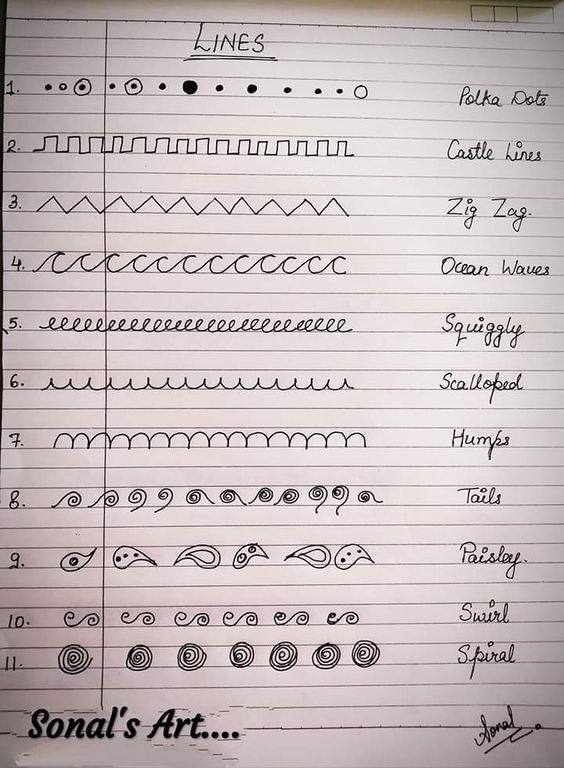 LINES
1. Polka Dots
2. Castle Lines
3. Zig Zag.
4. Ocean Waves
5. Squiggly
6. Scalloped
7. Humps
8. Tails
9. Paisley.
10. Swirl
11. Spiral
Sonal's Art....
Sonal